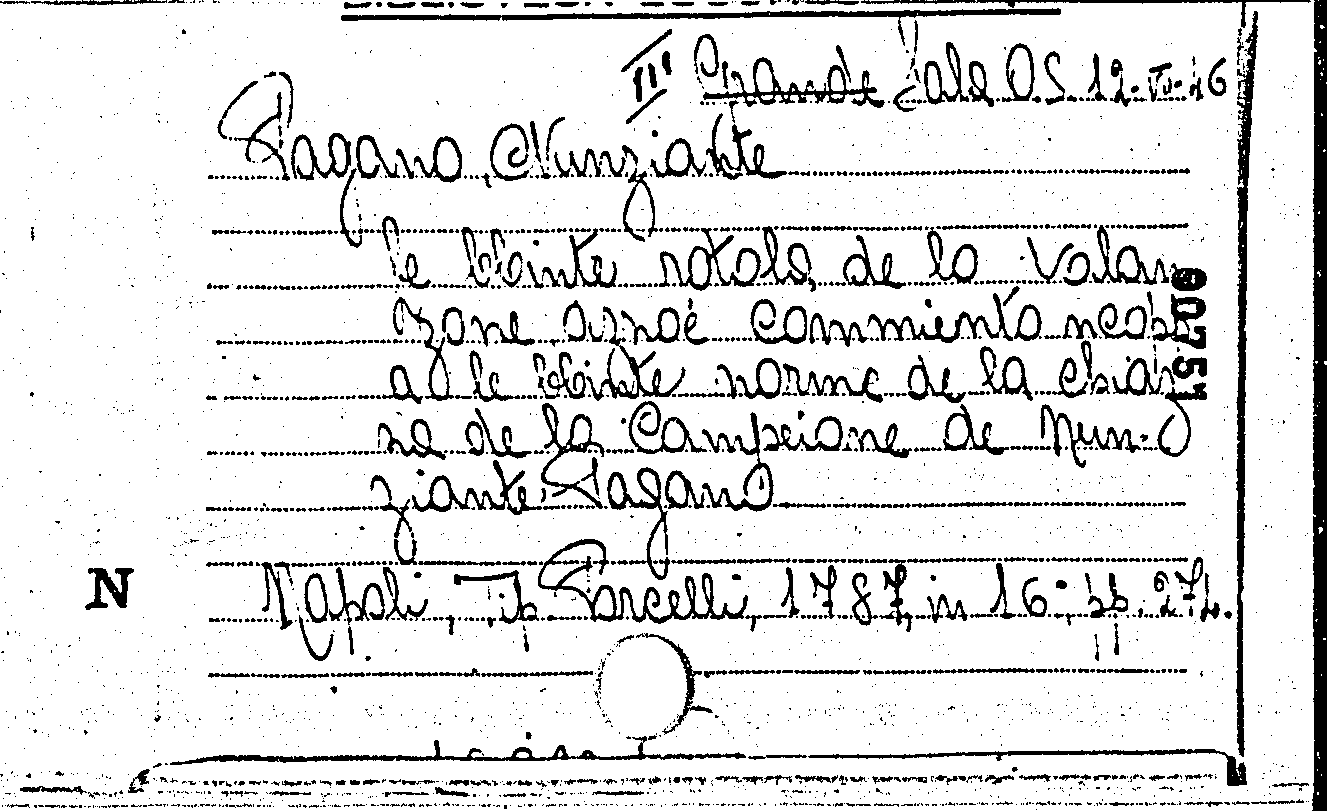 III Grande Sala O.S. 12-VI-46
Pagano, Nunziante
le bbinte rotola de la Valan
zone, azzoè commiento ncopp
a o le bbinte norme de la chiaz
za de la Campeione de Nun-
ziante Pagano
N Napoli, Tip. Porcelli, 1787, in 16°; pp. 274.
00751